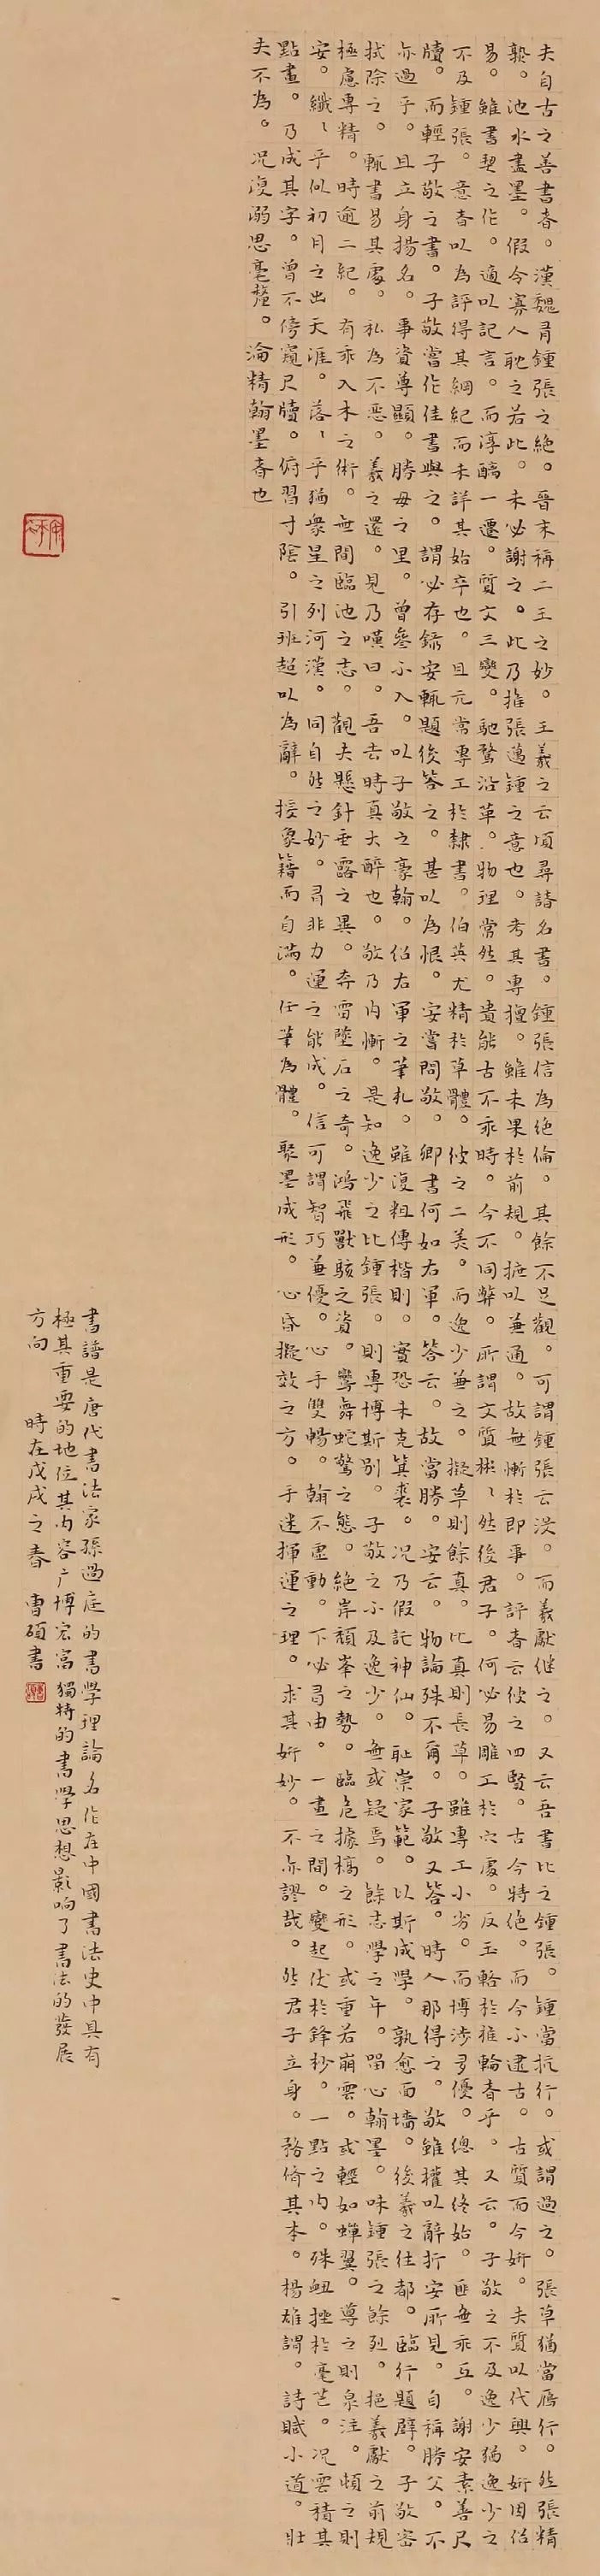 夫自古之善書者。漢魏有鍾張之絕。晉末稱二王之妙。王羲之云頃尋諸名書。鍾張信為絕倫。其餘不足觀。可謂鍾張云沒。而羲獻继之。又云吾書比之鍾張。鍾當抗行。或謂過之。張草猶當鴈行。然張精
熟。池水盡墨。假令寡人耽之若此。未必謝之。此乃推張邁鍾之意也。考其專擅。雖未果於前規。摭以兼通。故無慚於即事。評者云彼之四賢。古今特絕。而今不逮古。古質而今妍。夫質以代興。妍因俗
易。雖書契之作。適以記言。而淳醨一遷。質文三變。馳騖沿革。物理常然。貴能古不乖時。今不同弊。所謂文質彬、然後君子。何必易雕工於穴處。反玉輅於椎輪者乎。又云。子敬之不及逸少猶逸少之
不及鍾張。意者以為評得其綱紀而未詳其始卒也。且元常專工於隸書。伯英尤精於草體。彼之二美。而逸少兼之。擬草則餘真。比真則長草。雖專工小劣。而博涉多優。總其終始。匪無乖互。謝安素善尺
牘。而輕子敬之書。子敬嘗作佳書與之。謂必存錄安輒題後答之。甚以為恨。安嘗問敬。卿書何如右軍。答云。故當勝。安云。物論殊不爾。子敬又答。時人那得之。敬雖權以辭折安所見。自稱勝父。不
亦過乎。且立身揚名。事資尊顯。勝母之里。曾參不入。以子敬之豪翰。紹右軍之筆札。雖復粗傳楷則。實恐未克箕裘。況乃假託神仙。恥崇家範。以斯成學。孰愈面墻。後羲之往都。臨行題壁。子敬密
拭除之。輒書易其處。私為不惡。羲之還。見乃嘆曰。吾去時真大醉也。敬乃內慚。是知逸少之比鍾張。則專博斯別。子敬之不及逸少。無或疑焉。餘志學之年。留心翰墨。味鍾張之餘烈。挹羲獻之前規
極慮專精。時逾二紀。有乖入木之術。無間臨池之志。觀夫懸針垂露之異。奔雷墜石之奇。鴻飛獸駭之資。鸞舞蛇驚之態。絕岸頹峯之勢。臨危據槁之形。或重若崩雲。或輕如蟬翼。導之則泉注。頓之則
安。纖、乎似初月之出天涯。落、乎猶衆星之列河漢。同自然之妙。有非力運之能成。信可謂智巧兼優。心手雙暢。翰不虛動。下必有由。一畫之間。變起伏於鋒杪。一點之內。殊衄挫於毫芒。況雲積其
點畫。乃成其字。曾不停窺尺牘。俯習寸陰。引班超以為辭。援象籍而自滿。任筆為體。聚墨成形。心昏擬效之方。手迷揮運之理。求其妍妙。不亦謬哉。然君子立身。務脩其本。楊雄謂。詩賦小道。壯
夫不為。況復溺思毫釐。淪精翰墨者也
書譜是唐代書法家孫過庭的書學理論名作在中國書法史中具有
極其重要的地位其內容广博宏富獨特的書學思想影响了書法的發展
方向　時在戊戌之春　曹碩書